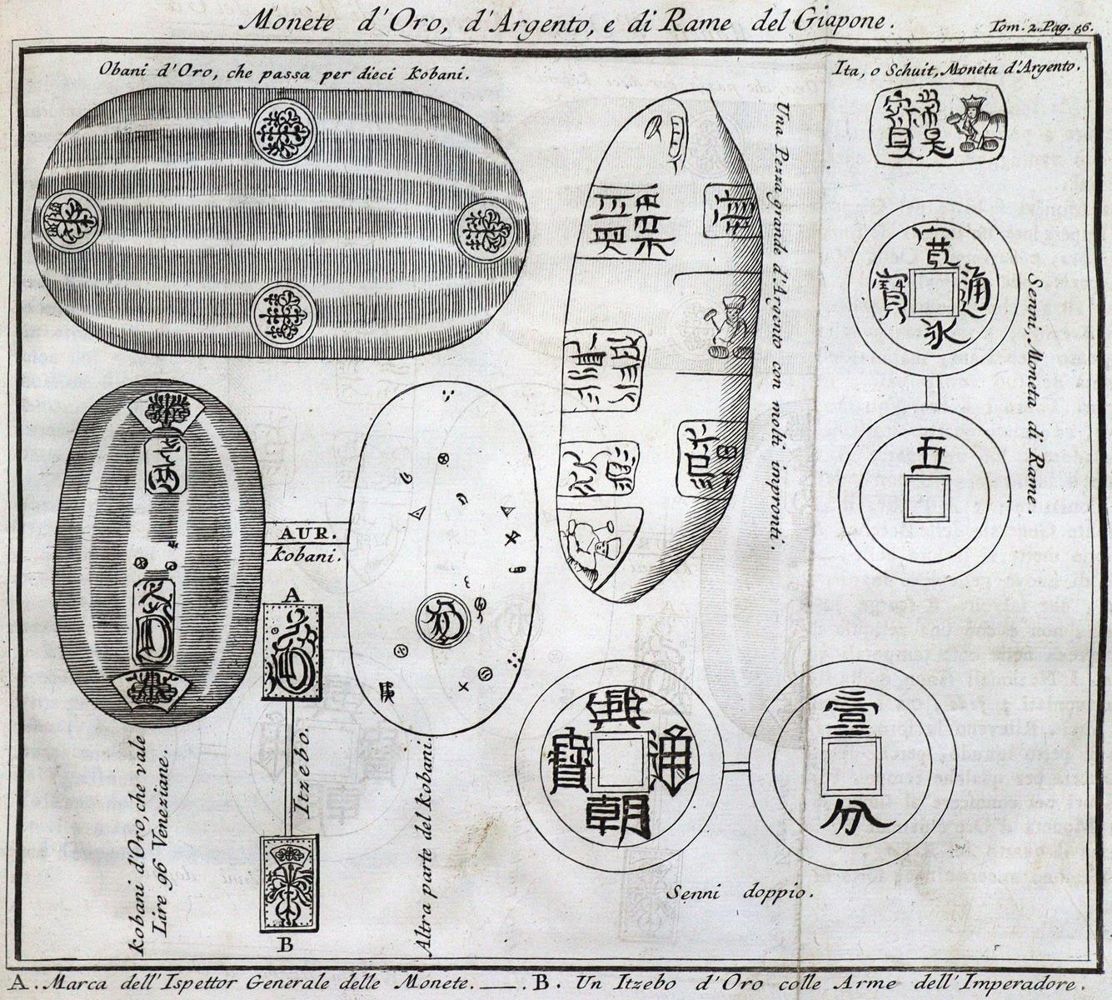 Monete d'Oro, d'Argento, e di Rame del Giapone.
Tom. 2. Pag. 86.
Obani d'Oro, che passa per dieci Kobani.
Ita, o Schuit, Moneta d'Argento.
Una Pezza grande d'Argento con molti impronti.
寬永通寳
Senni, Moneta di Rame
五
AUR.
Kobani.
A
Itzebo.
B
Kobani d'Oro, che vale
Lire 96 Veneziane.
Altra parte del Kobani.
興朝通寶
壹
分
Senni doppio.
A. Marca dell'Ispettor Generale delle Monete. — . B. Un Itzebo d'Oro colle Arme dell'Imperadore.